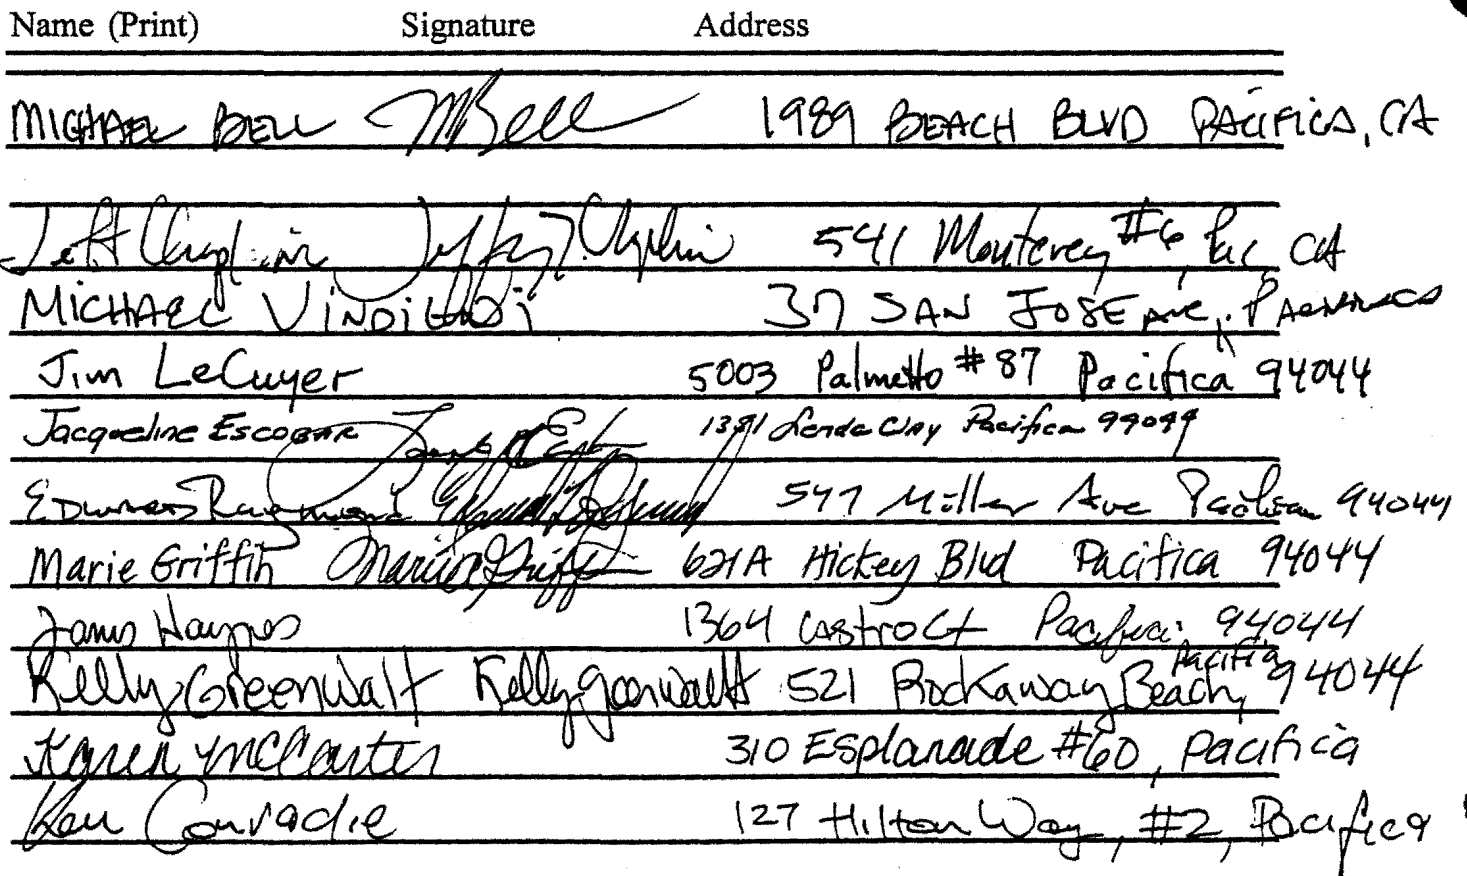 Name (Print) Signature Address
MICHAEL BELL MBell 1989 BEACH BLVD PACIFICA, CA
Jeff Chaplin Jeffrey Chaplin 541 Monterey #6, Pac CA
MICHAEL 37 SAN JOSE AVE,
Jim LeCuyer 5003 Palmetto #87 Pacifica 94044
Jacqueline ESCOBAR 1381 Linda Pacifica 94044
Raymond 547 Miller Ave Pacifica 94044
Marie Griffin Marie Griffin 621A Hickey Blvd Pacifica 94044
Haynes 1364 Castro Ct Pacifica 94044
Kelly Greenwalt Kelly Greenwalt 521 Rockaway Beach, Pacifica 94044
Karen McCarter 310 Esplanade #60, Pacifica
Ken Conradie 127 Hilton Way, #2, Pacifica